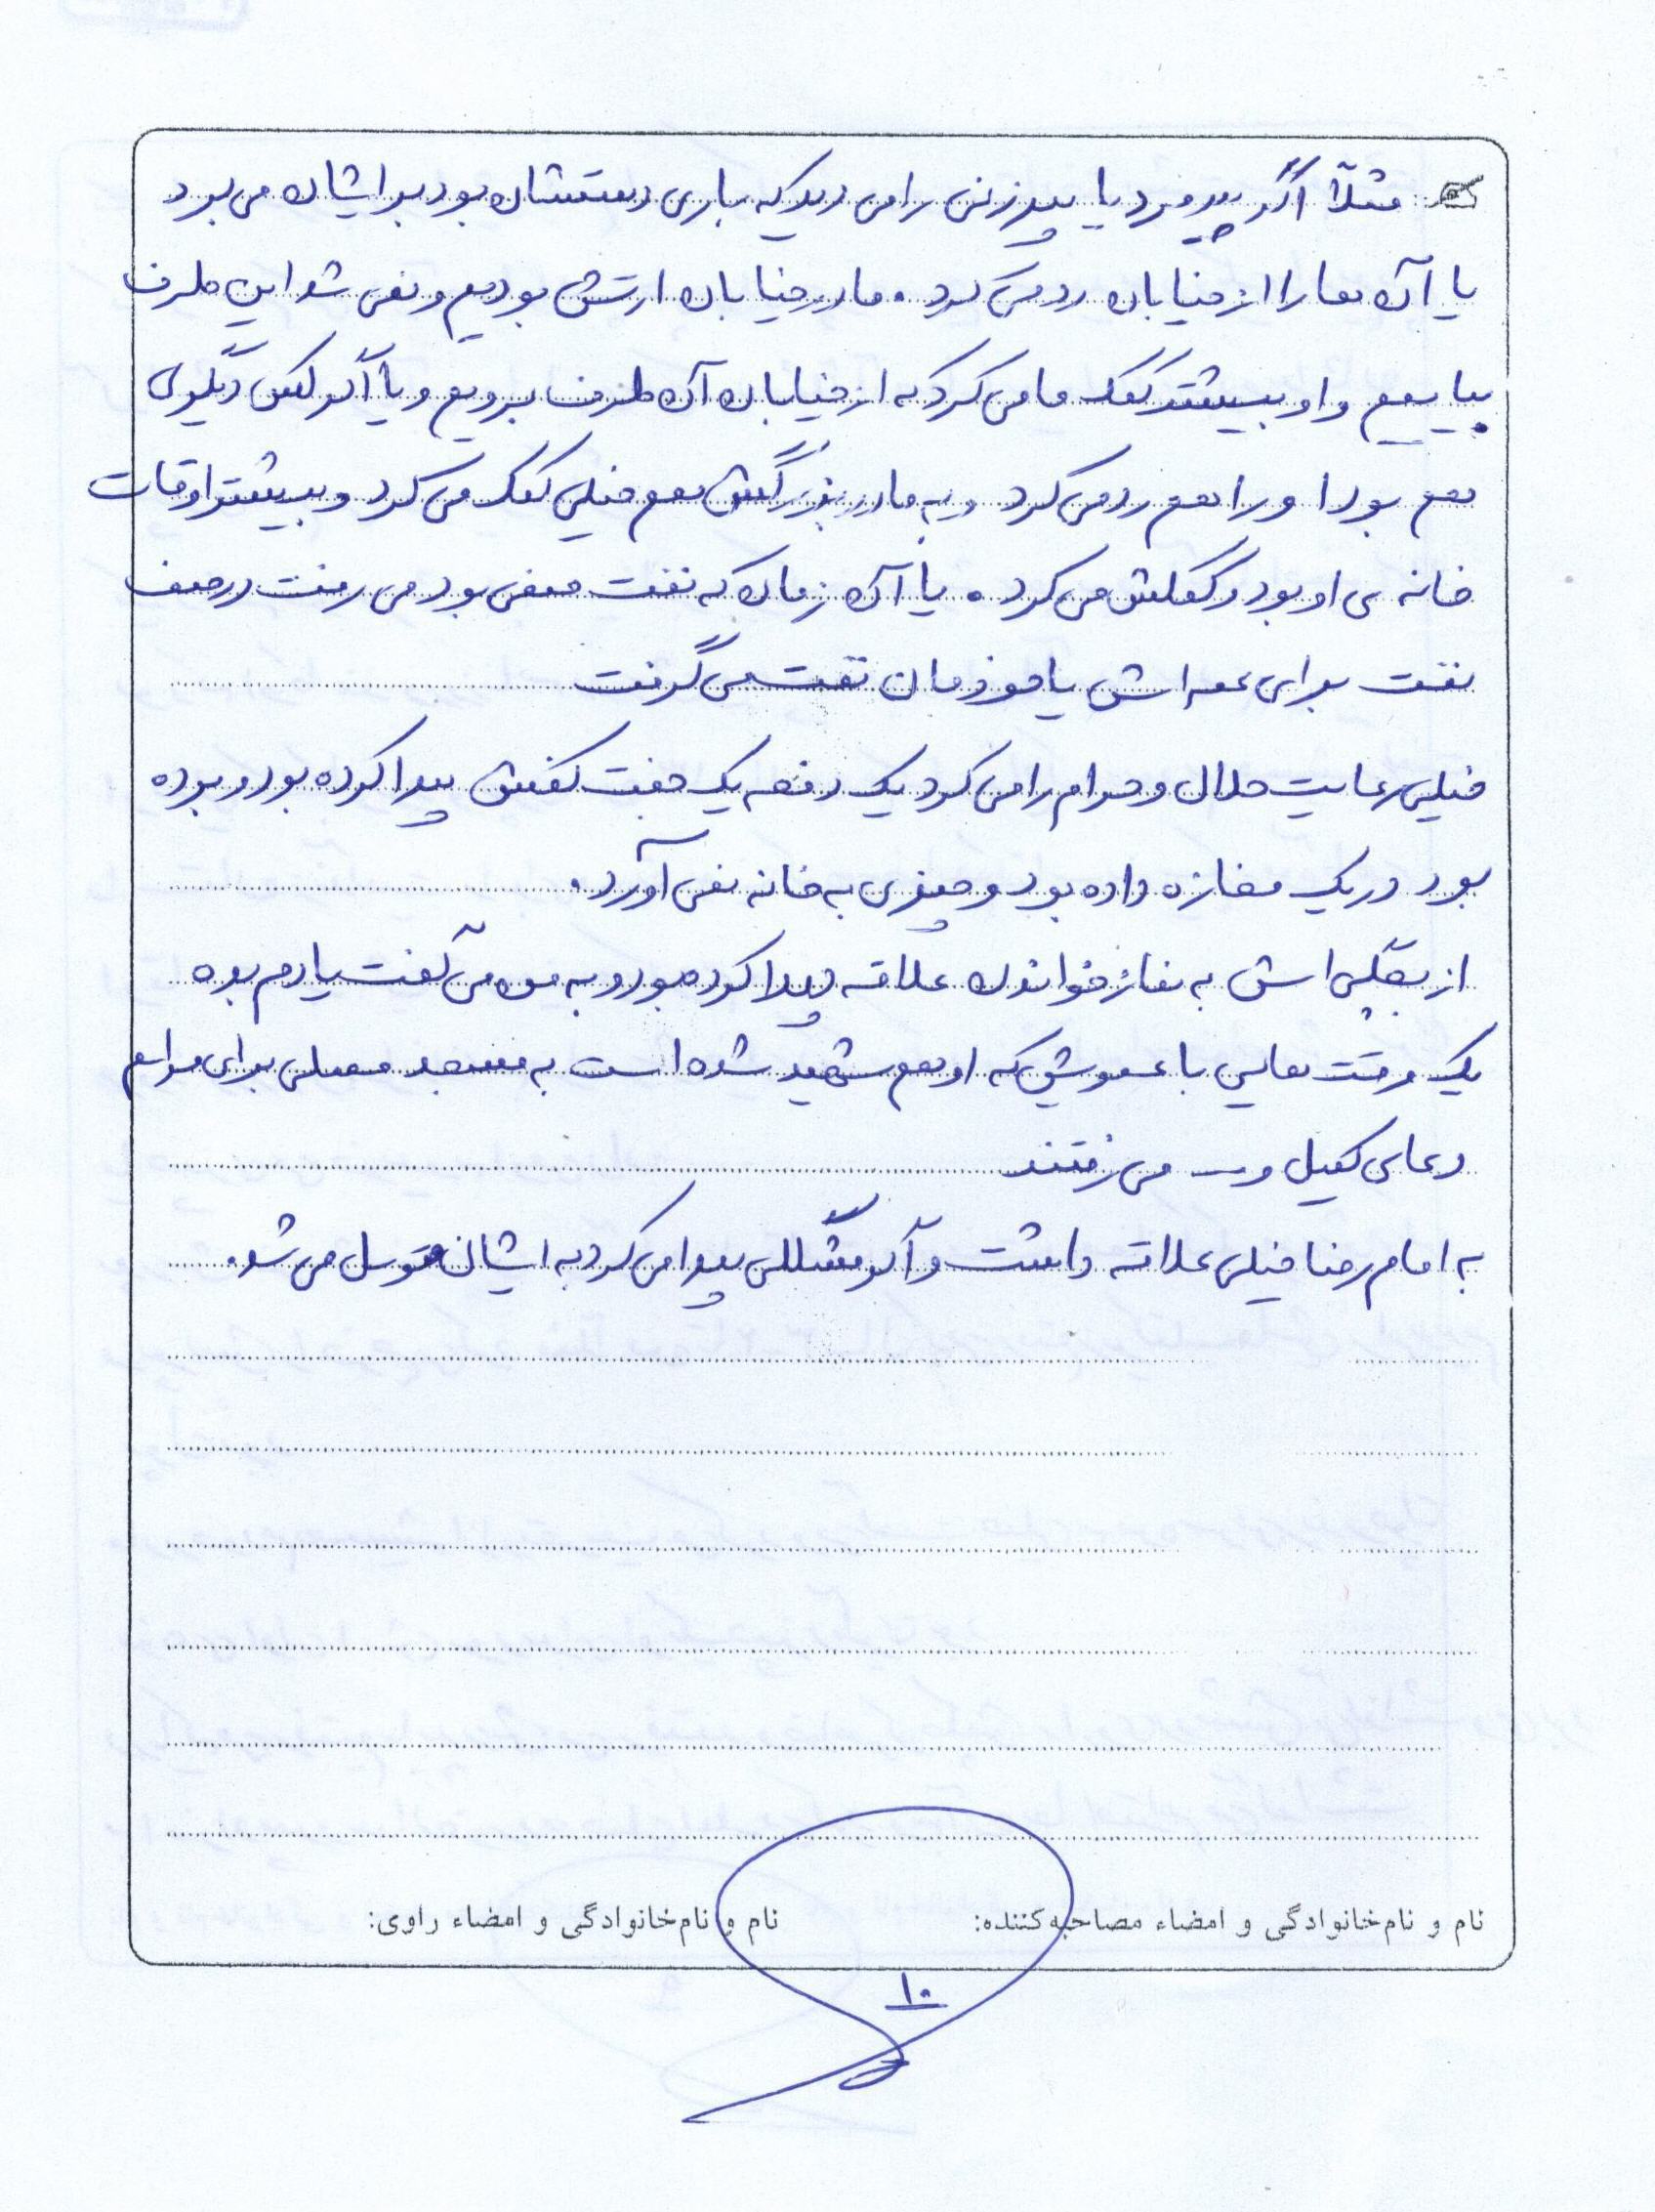 مثلاً اگر پیرمرد یا پیرزنی را می دید که باری دستشان بود برایشان می برد
یا آن ها را از خیابان رد می کرد. ما در خیابان ارتش بودیم و نمی شد این طرف
بیاییم و او بیشتر کمک ما می کرد که از خیابان آن طرف برویم و یا اگر کس دیگری
هم بود او را هم رد می کرد و به مادربزرگش هم خیلی کمک می کرد و بیشتر اوقات
خانه ی او بود و کمکش می کرد. یا آن زمان که نفت صفی بود می رفت در صف
نفت برای عمه اش یا خودمان نفت می گرفت
خیلی رعایت حلال و حرام را می کرد یک دفعه یک جفت کفش پیدا کرده بود و برده
بود در یک مغازه داده بود و چیزی به خانه نمی آورد.
از بچگی اش به نماز خواندن علاقه پیدا کرده بود و به من می گفت یادم بده
یک وقت هایی با عمویش که او هم شهید شده است به مسجد مصلی برای مراسم
دعای کمیل و... می رفتند
به امام رضا خیلی علاقه داشت و اگر مشکلی پیدا می کرد به ایشان متوسل می شد.
نام و نام خانوادگی و امضاء مصاحبه کننده: نام و نام خانوادگی و امضاء راوی:
۱۰